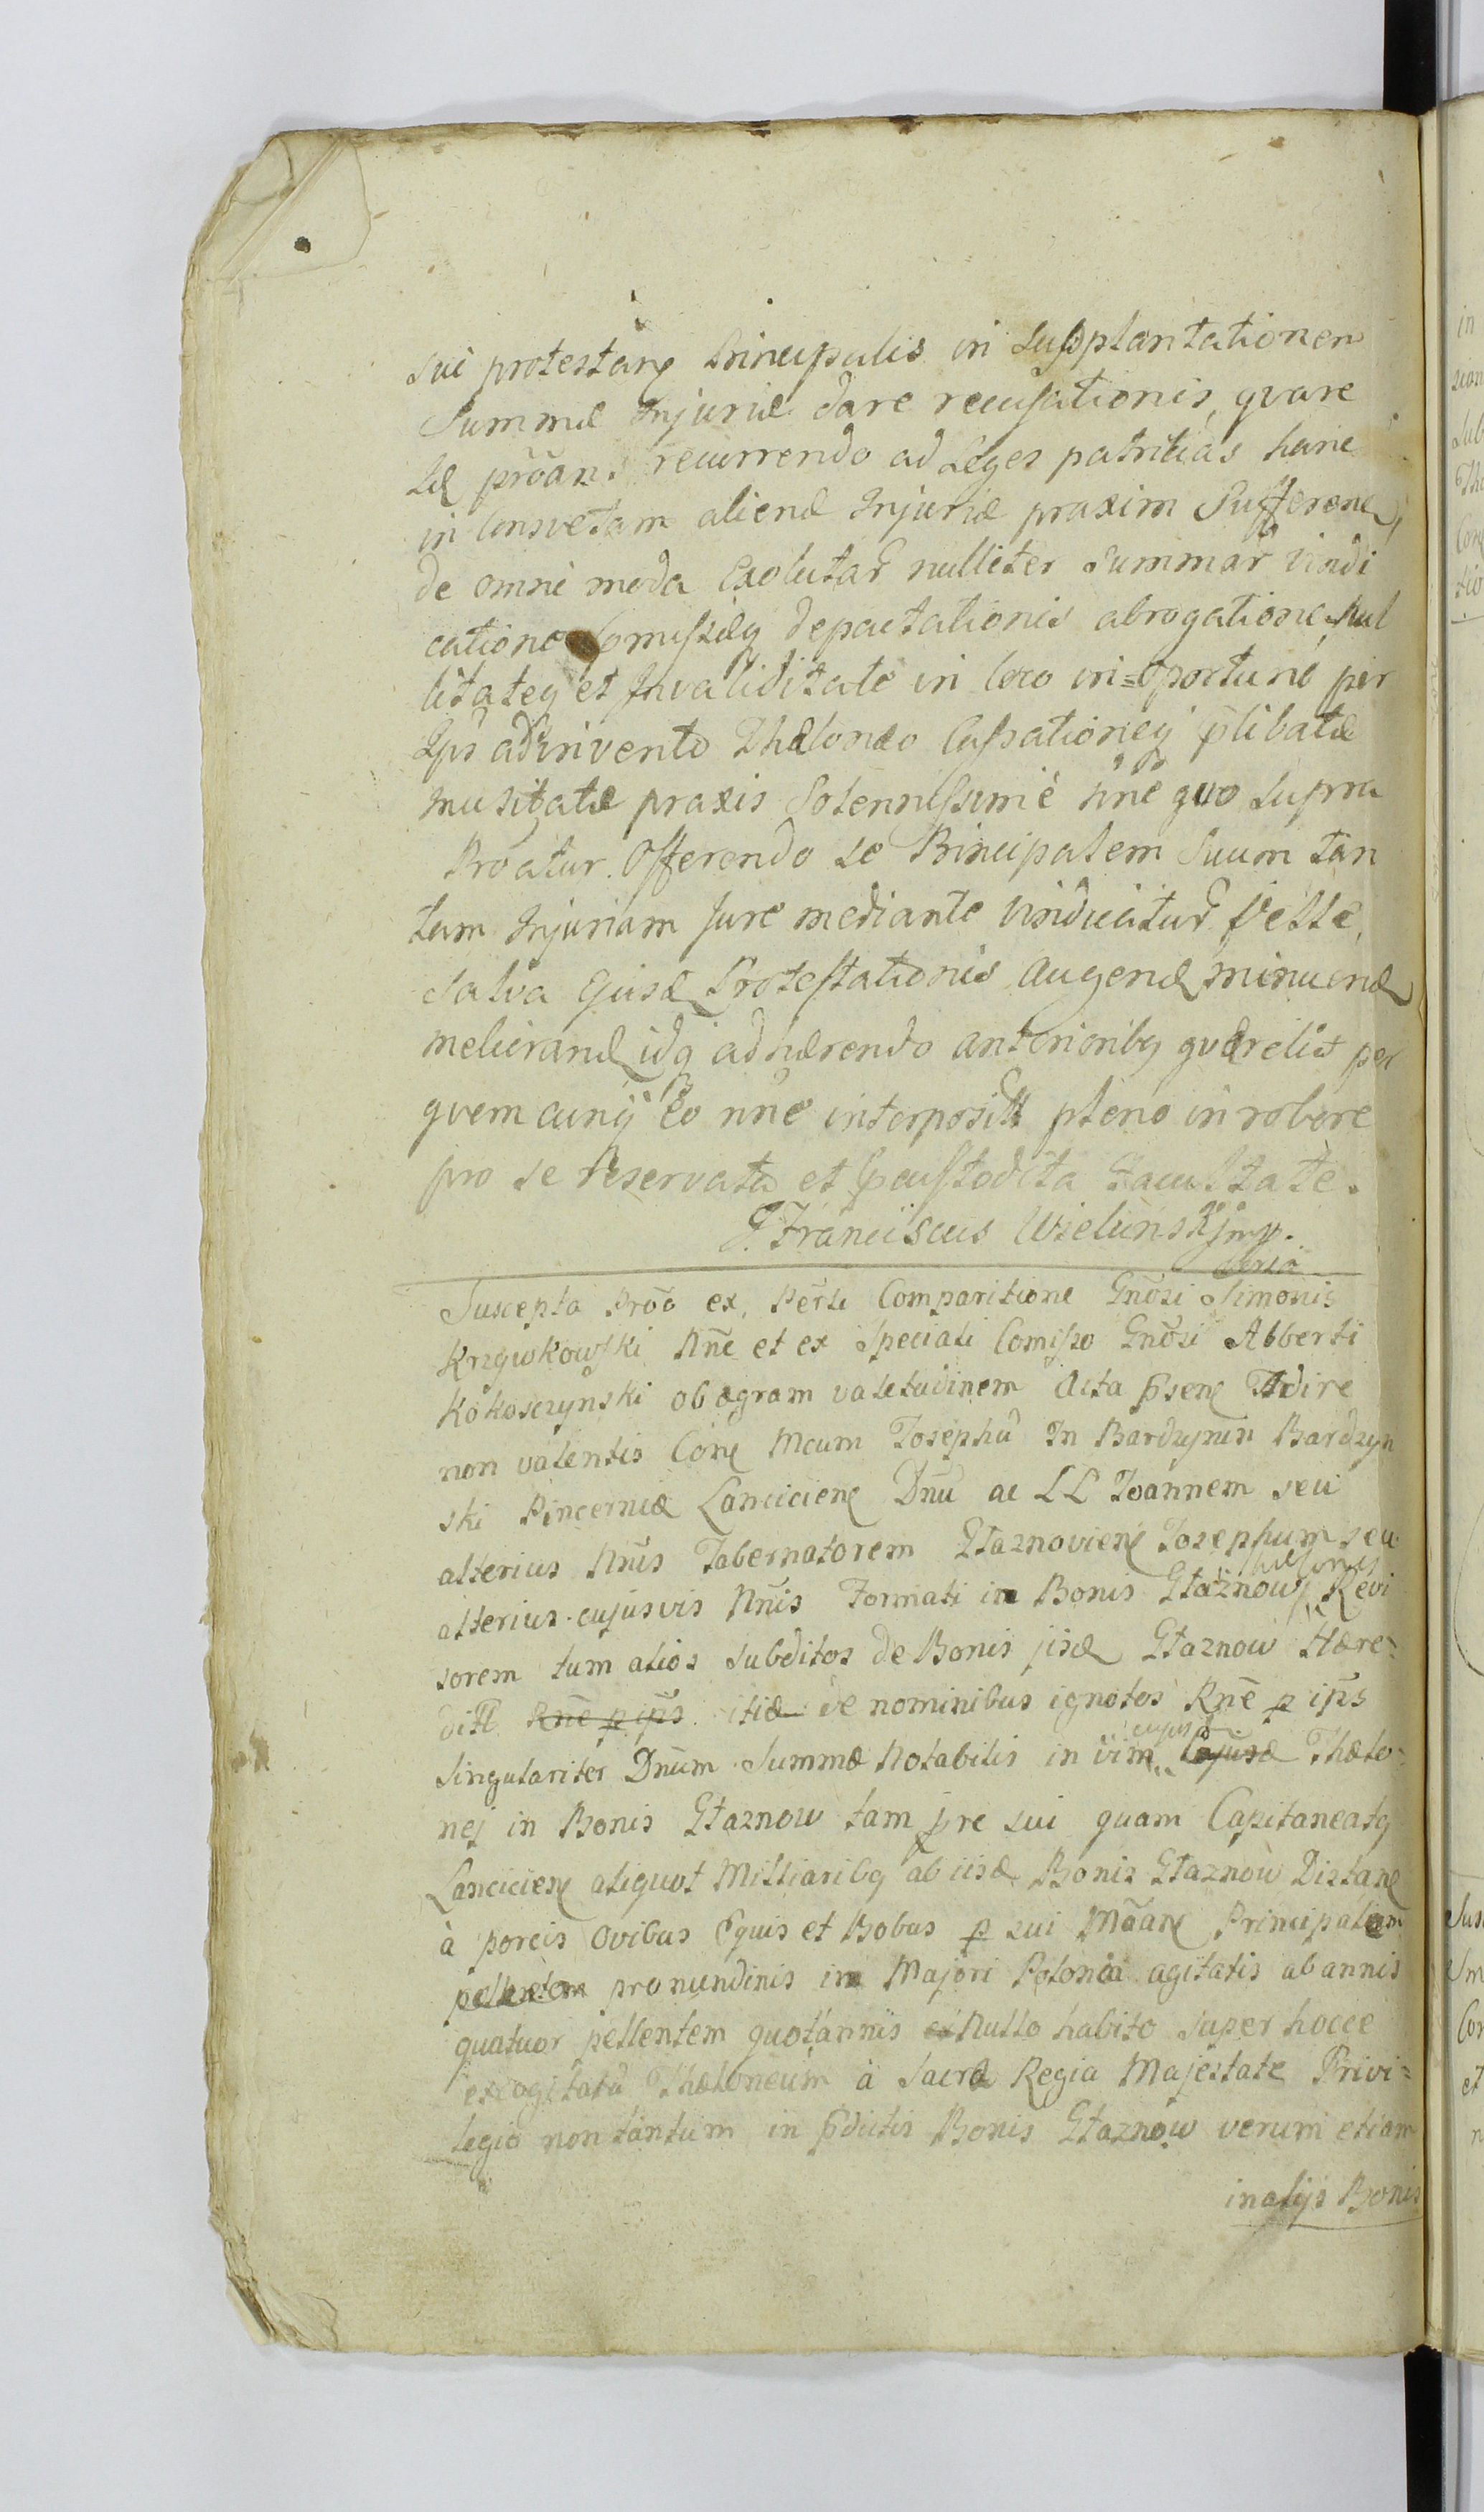 sui protestanē Principalis in Supplantationem
Summæ Injuriæ dare recusationis, qvare
se prōan. recurrendo ad Leges patritias hanc
in Consvetam alienæ Injuriæ praxim Sufferenđ,
de omni moda Exolutar nulliter Summar vindi
catione Comissæq depactationis abrogatione Nul
litateq et Invaliditate in loco in=oportuno per
Ips adinvento Thæloneo Cassationeq p̄libatæ
inusitatæ praxis Solennissimè nn̄e quo Supra
Proatur. Offerendo se Principalem Suum tan
tam Injuriam Jure mediante vindicatur Velle,
Salva Ejusđ Protestationis augenđ minuenđ
meliorand idq adhærendo anterioribq qværelis per
qvemcunq Eo nn̄e interposit pleno in robore
pro se reservata et p̄custodita Facultate.
Franciscus Wieluński mp.
Suscepta Prōo ex Persli Comparitione Gn̄osi Simonis
Krzywkowski Nn̄e et ex Speciali Comisso Gn̄osi Alberti
Kokoszynski ob ægram valetudinem Acta p̄senē Adire
non valentis Conē Mcum Josephū In Bardzynin Bardzyn
ski Pincernidæ Lancicienē Dnū ac LL Joannem seu
alterius Nn̄is Tabernatorem Głaznovienē Josephum seu
alterius cujusvis Nn̄is Formati in Bonis Głaznow Thelonei Revi
sorem tum alios Subditos de Bonis jisđ Głaznow Hære-
dit. Rn̄e p ip̄s itid de nominibus ignotos Rn̄e p ip̄s
Singulariter Dn̄um Summæ Notabilis in vim cujusđ Thælo-
nej in Bonis Głaznow tam p̄re sui quam Capitaneatq
Lancicienē aliquot Milliaribq ab iisđ Bonis Głaznow Distanē
à porcis Ovibus Equis et Bobus p sui Māanē Principalem
pellentem pro nundinis in Majori Polonia agitatis ab annis
quatuor pellentem quotannis Nullo habito super hocce
excogitatū Thæloneum à Sacra Regia Majestate Privi=
legio non tantum in p̄dictis Bonis Głaznow verum etiam
in alijs Bonis